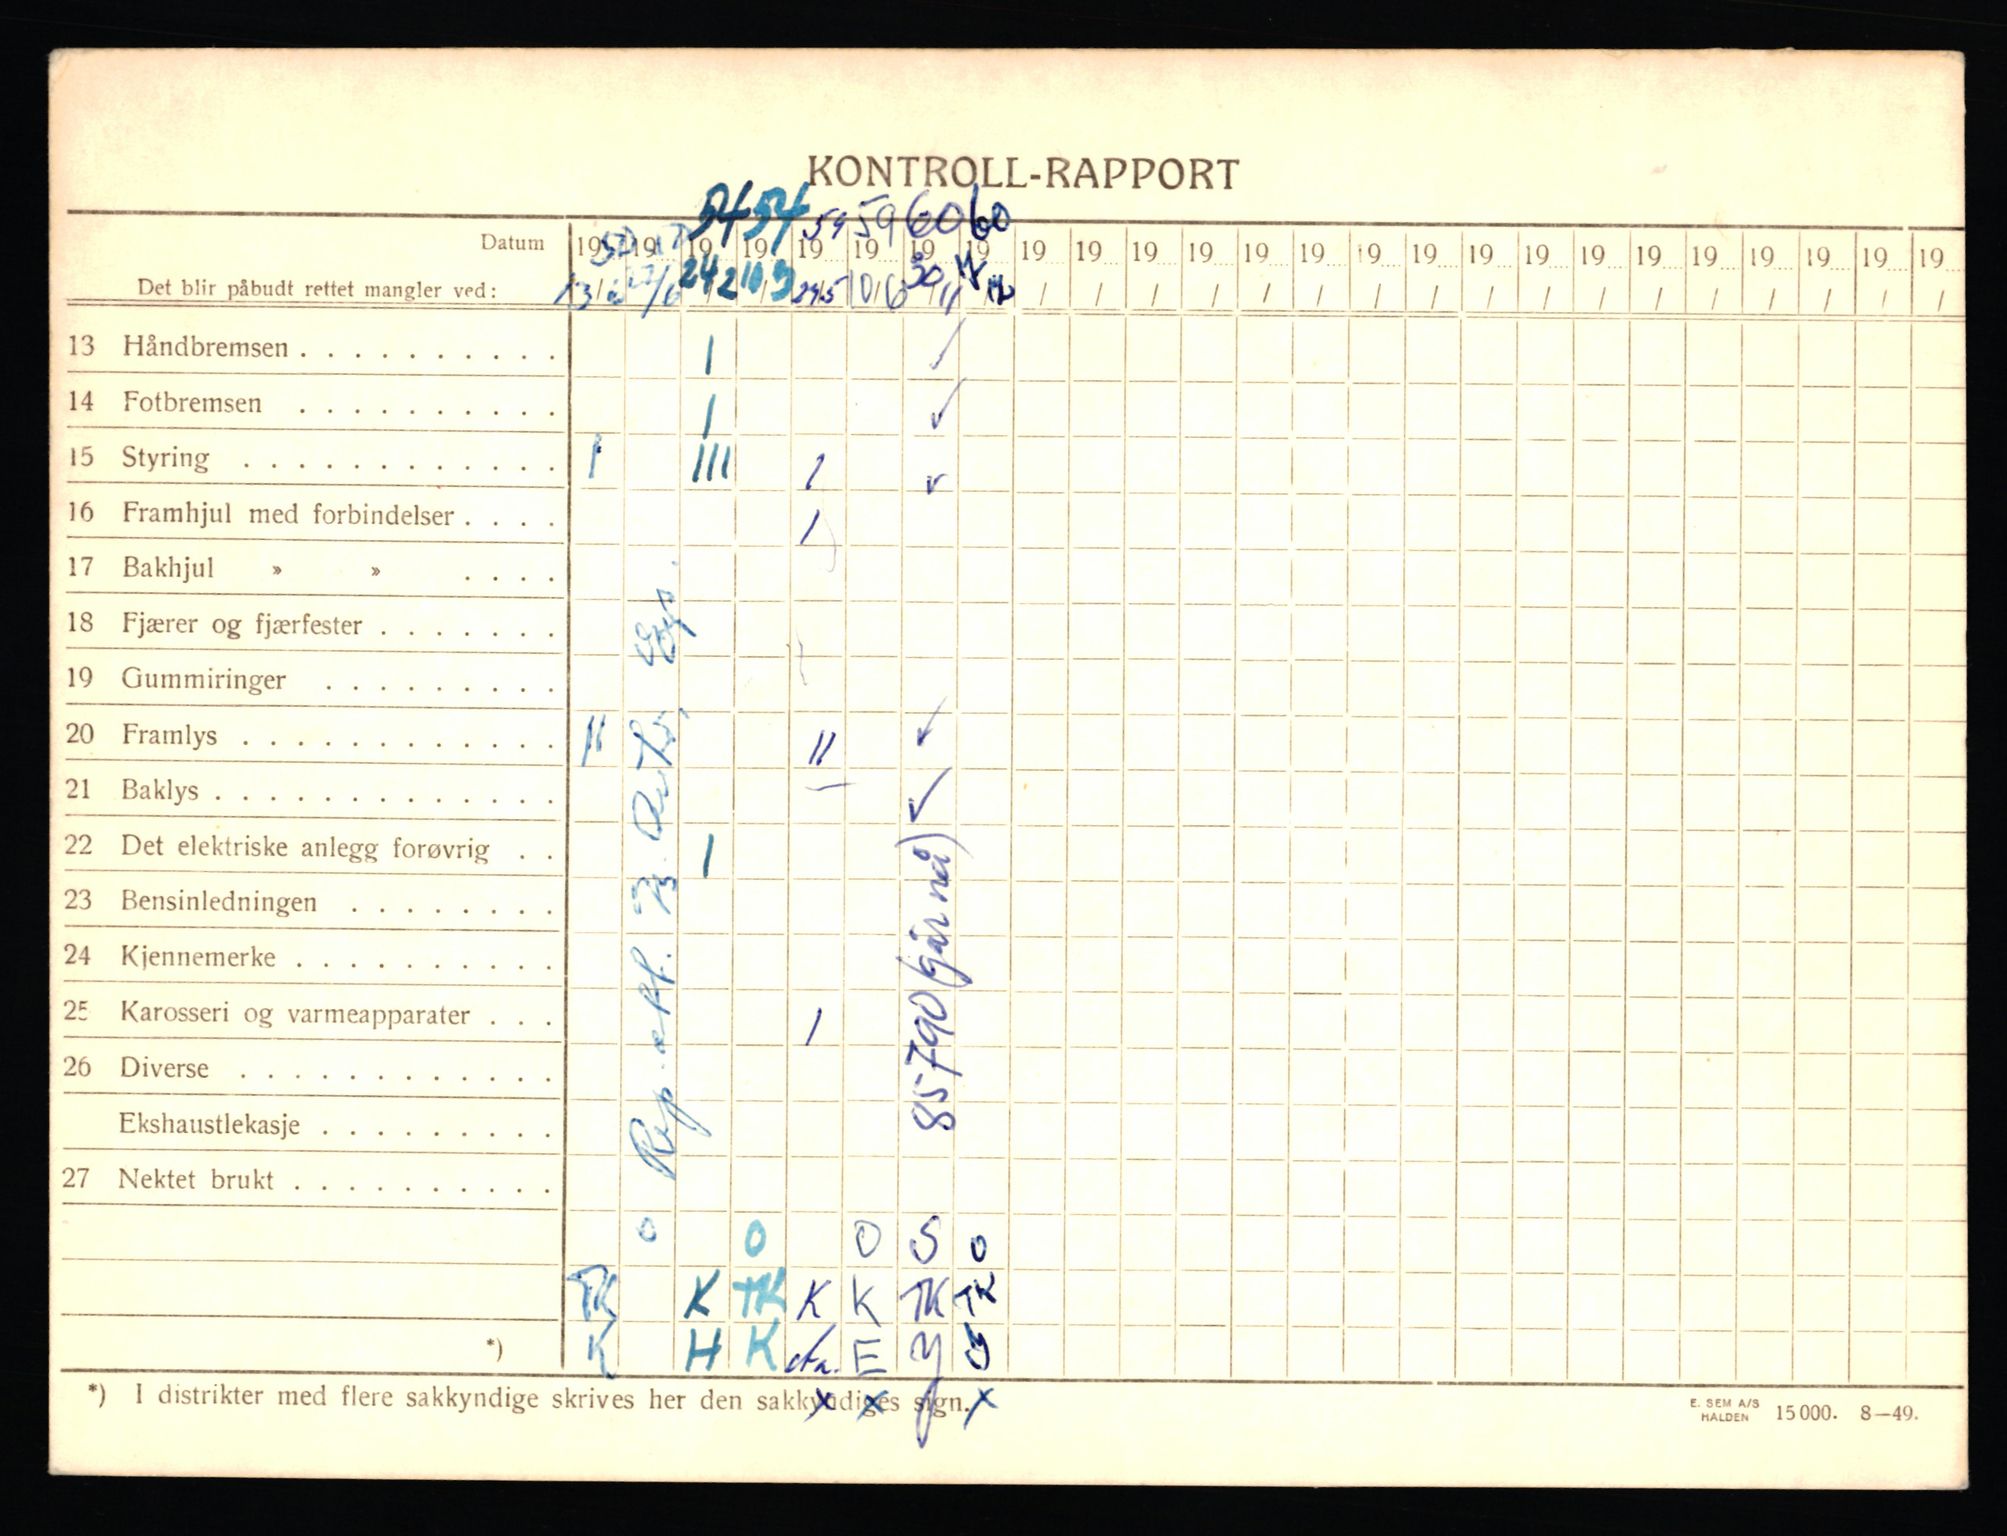 KONTROLL-RAPPORT
54 54 59 59 60 60
Datum 19 19 19 19 19 19 19 19 19 19 19 19 19 19 19 19 19 19 19 19 19 19 19 19 19
Det blir påbudt rettet mangler ved: 24/2 10/3 29/5 10/6 30/11
13 Håndbremsen I ✓
14 Fotbremsen I ✓
15 Styring I III I ✓
16 Framhjul med forbindelser I
17 Bakhjul » »
18 Fjærer og fjærfester
19 Gummiringer
20 Framlys II II ✓
21 Baklys ✓
22 Det elektriske anlegg forøvrig I
23 Bensinledningen
24 Kjennemerke
25 Karosseri og varmeapparater I
26 Diverse
Ekshaustlekasje
27 Nektet brukt
Rep.
85790 (går nå)
0 0 0 S 0
TK K TK K K TK TK
*) K H K E
*) I distrikter med flere sakkyndige skrives her den sakkyndiges sign.
x x x
E. SEM A/S
HALDEN 15000. 8—49.